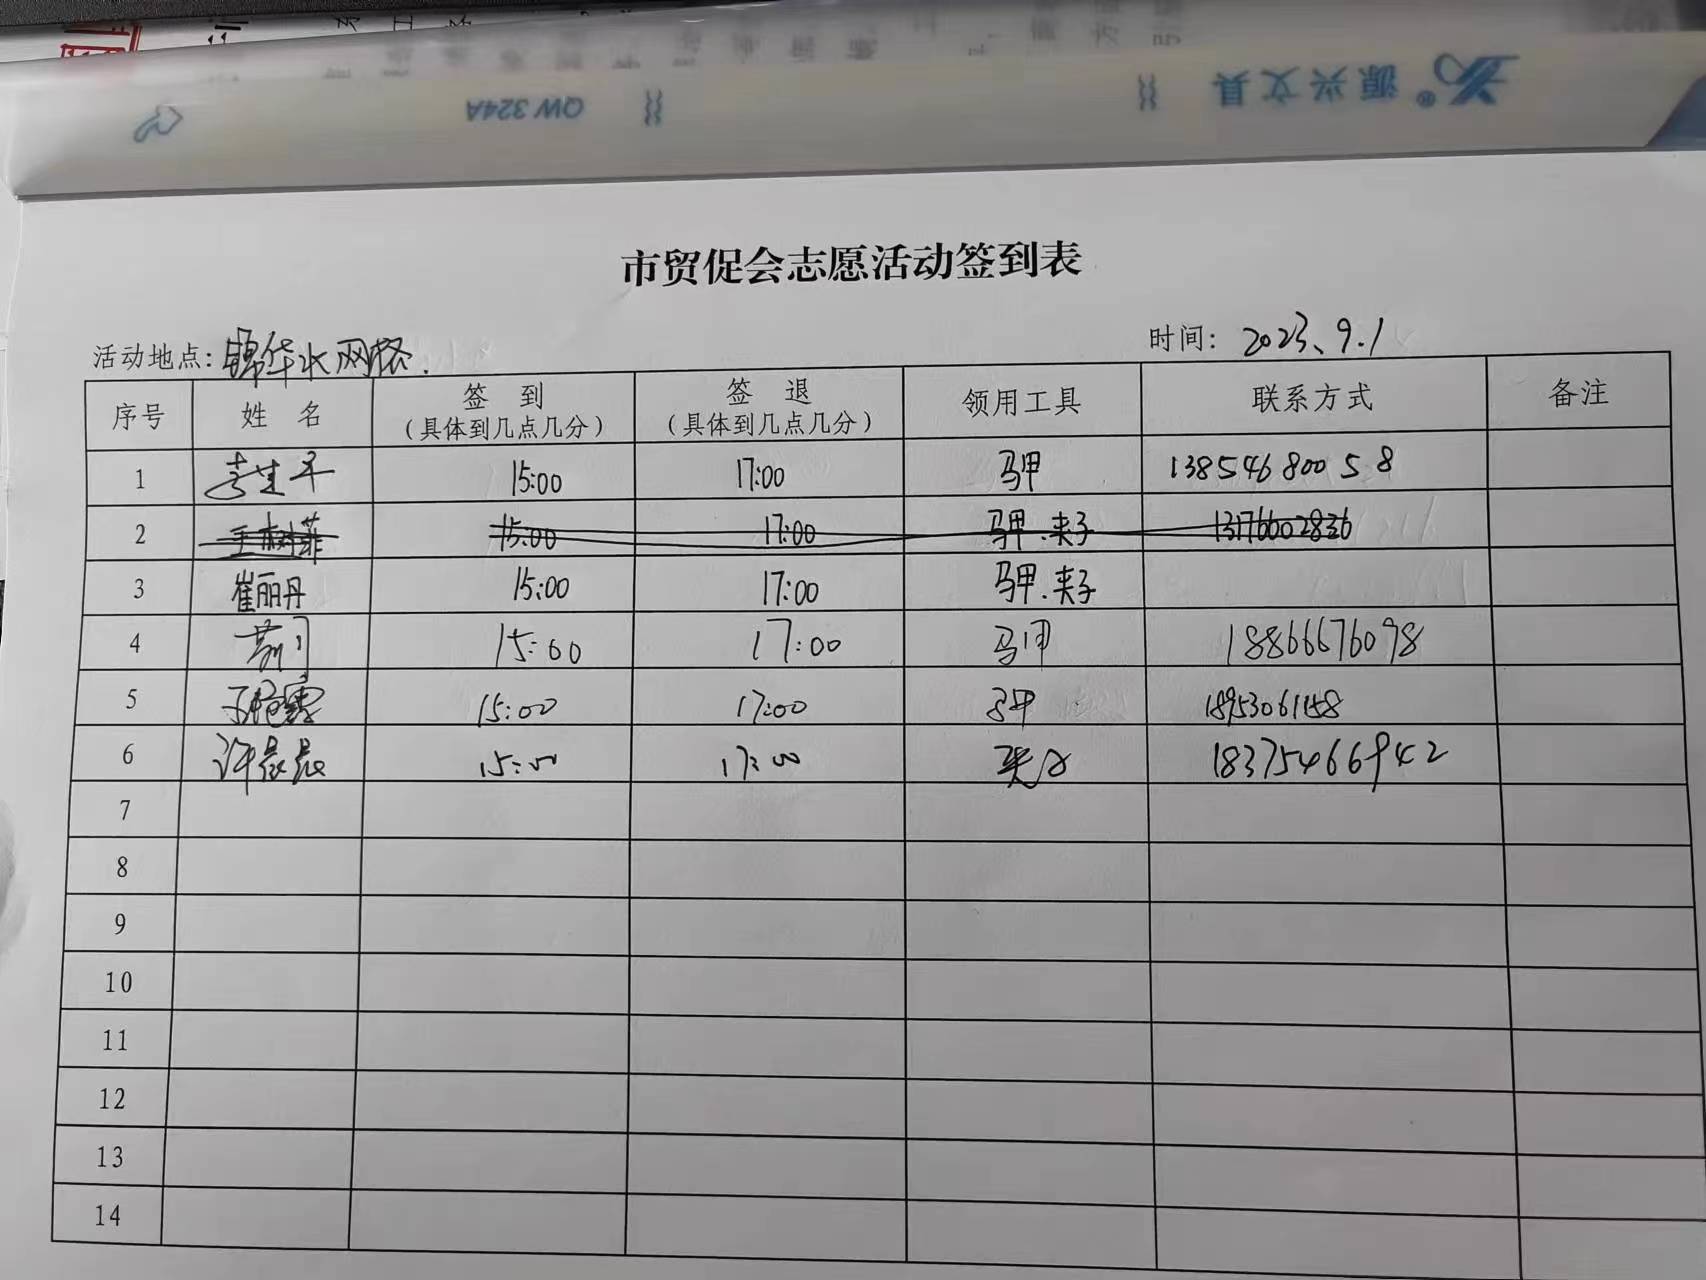 源兴文具®
QW 324A
市贸促会志愿活动签到表
活动地点：锦华水网格.
时间： 2023、9.1
序号 姓 名 签 到 （具体到几点几分） 签 退 （具体到几点几分） 领用工具 联系方式 备注
1 15:00 17:00 马甲 13854680058
2 王树菲 15:00 17:00 马甲.夹子 13176602836
3 崔丽丹 15:00 17:00 马甲.夹子
4 15:00 17:00 马甲 18866676098
5 15:00 17:00 马甲
6 许晨晨 15:00 17:00 夹子 18375466942
7
8
9
10
11
12
13
14